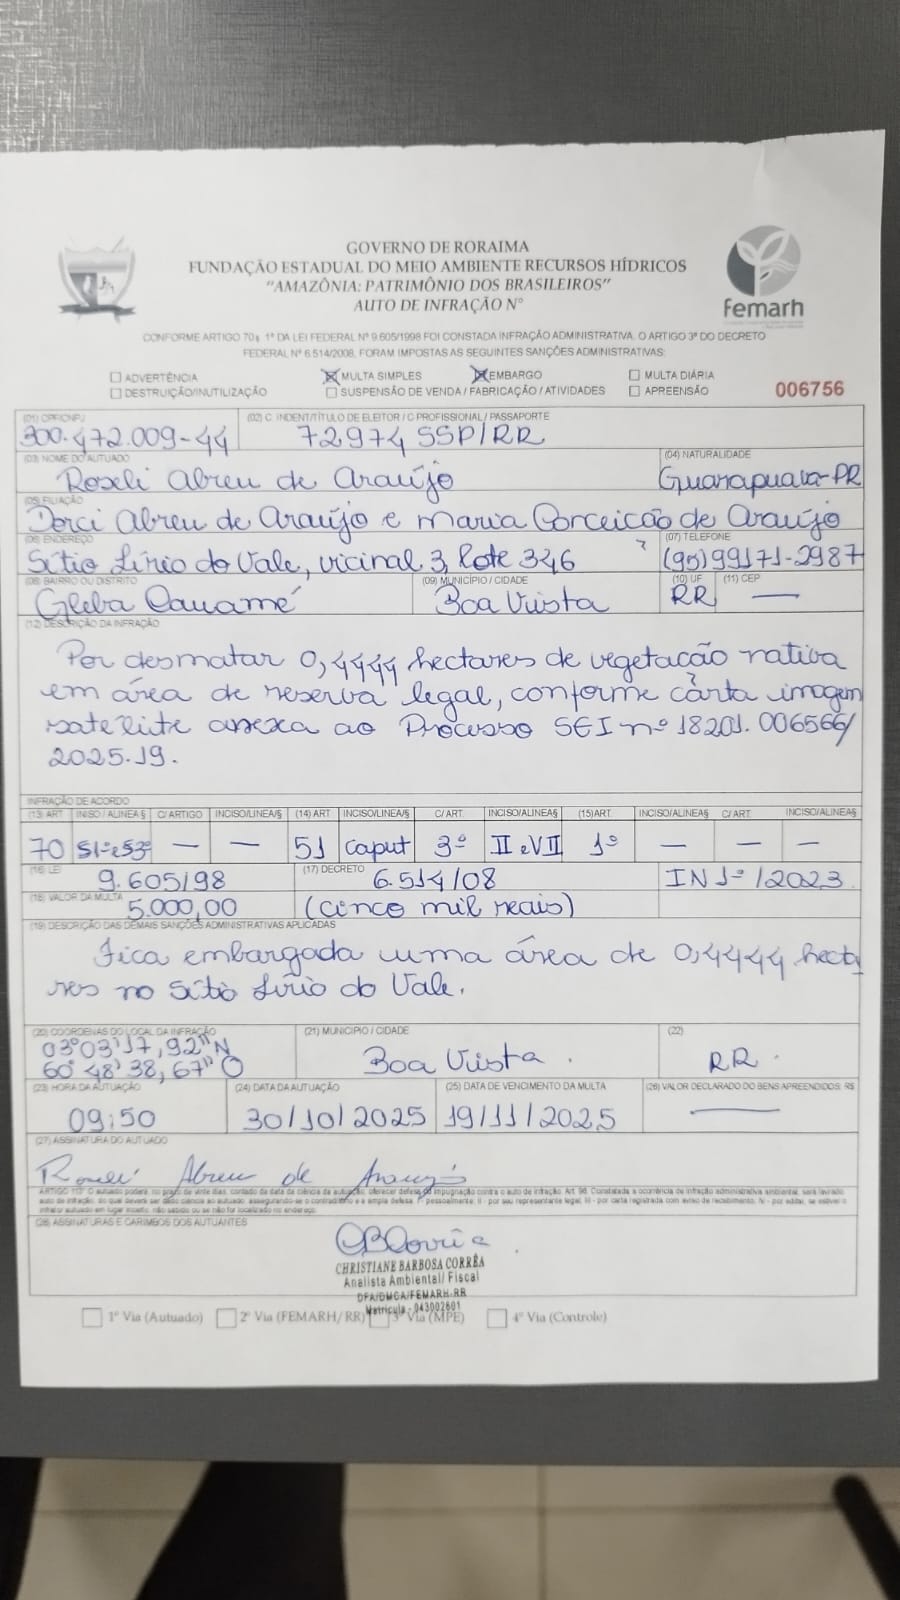 GOVERNO DE RORAIMA
FUNDAÇÃO ESTADUAL DO MEIO AMBIENTE RECURSOS HÍDRICOS
"AMAZÔNIA: PATRIMÔNIO DOS BRASILEIROS"
AUTO DE INFRAÇÃO Nº
femarh
CONFORME ARTIGO 70 § 1º DA LEI FEDERAL Nº 9.605/1998 FOI CONSTADA INFRAÇÃO ADMINISTRATIVA. O ARTIGO 3º DO DECRETO
FEDERAL Nº 6.514/2008, FORAM IMPOSTAS AS SEGUINTES SANÇÕES ADMINISTRATIVAS:
ADVERTÊNCIA MULTA SIMPLES EMBARGO MULTA DIÁRIA
DESTRUIÇÃO/INUTILIZAÇÃO SUSPENSÃO DE VENDA / FABRICAÇÃO / ATIVIDADES APREENSÃO 006756
(01) CPF/CNPJ (02) C. INDENT/TÍTULO DE ELEITOR / C PROFISSIONAL / PASSAPORTE
300.472.009-44 72974 SSP/RR
(03) NOME DO AUTUADO (04) NATURALIDADE
Roseli Abreu de Araújo Guarapuava-PR
(05) FILIAÇÃO
Dorci Abreu de Araújo e Maria Conceicão de Araújo
(06) ENDEREÇO (07) TELEFONE
Sítio Lírio do Vale, vicinal 3, lote 346 (95)99171-2987
(08) BAIRRO OU DISTRITO (09) MUNICÍPIO / CIDADE (10) UF (11) CEP
Gleba Cauamé Boa Vista RR —
(12) DESCRIÇÃO DA INFRAÇÃO
Por desmatar 0,4444 hectares de vegetacão nativa
em área de reserva legal, conforme carta imagem
satelite anexa ao Processo SEI nº 18201.006566/
2025.19.
INFRAÇÃO DE ACORDO
(13) ART INISO / ALINEA § C/ ARTIGO INCISO/LINEA/§ (14) ART INCISO/LINEA/§ C/ ART. INCISO/ALINEA§ (15) ART. INCISO/ALINEA§ C/ ART. INCISO/ALINEA§
70 51ºe53º — — 51 caput 3º II e VII 1º — — —
(16) LEI (17) DECRETO
9.605/98 6.514/08 IN 1º/2023
(18) VALOR DA MULTA
5.000,00 (cinco mil reais)
(19) DESCRIÇÃO DAS DEMAIS SANÇÕES ADMINISTRATIVAS APLICADAS
Fica embargada uma área de 0,4444 hecta
res no Sítio Lírio do Vale.
(20) COORDENAS DO LOCAL DA INFRAÇÃO (21) MUNICIPIO / CIDADE (22)
03º03'17,92"N
60º48'38,67"O Boa Vista. RR.
(23) HORA DA AUTUAÇÃO (24) DATA DA AUTUAÇÃO (25) DATA DE VENCIMENTO DA MULTA (26) VALOR DECLARADO DO BENS APREENDIDOS: R$
09:50 30/10/2025 19/11/2025 —
(27) ASSINATURA DO AUTUADO
Roseli Abreu de Araujo
ARTIGO 113º O autuado poderá, no prazo de vinte dias, contado da data da ciência da autuação, oferecer defesa ou impugnação contra o auto de infração. Art. 96. Constatada a ocorrência de infração administrativa ambiental, será lavrado
auto de infração, do qual deverá ser dado ciência ao autuado, assegurando-se o contraditório e a ampla defesa.
(28) ASSINATURAS E CARIMBOS DOS AUTUANTES
CHRISTIANE BARBOSA CORRÊA
Analista Ambiental/ Fiscal
DFA/DMCA/FEMARH-RR
Matrícula - 043002601
1º Via (Autuado) 2º Via (FEMARH/RR) 3º Via (MPE) 4º Via (Controle)